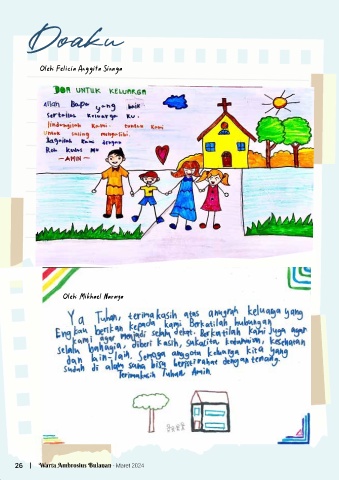 Doaku
Oleh Felicia Anggita Sianga
DOA UNTUK KELUARGA
Allah Bapa yang baik
sertailah Keluarga ku.
lindungilah kami. tuntun kami
untuk saling mengasihi.
Bagailah kami dengan
Roh Kudus Mu
- AMIN -
Oleh Mikhael Narago
Ya Tuhan, terimakasih atas anugrah keluarga yang
Engkau berikan kepada kami Berkatilah hubungan
kami agar menjadi selalu dekat. Berkatilah kami juga agar
selalu bahagia, diberi kasih, sukacita, kedamaian, kesehatan
dan lain-lain. Semoga anggota keluarga kita yang
sudah di alam sana bisa beristirahat dengan tenang.
Terimakasih Tuhan. Amin
26 | Warta Ambrosius Bulanan - Maret 2024